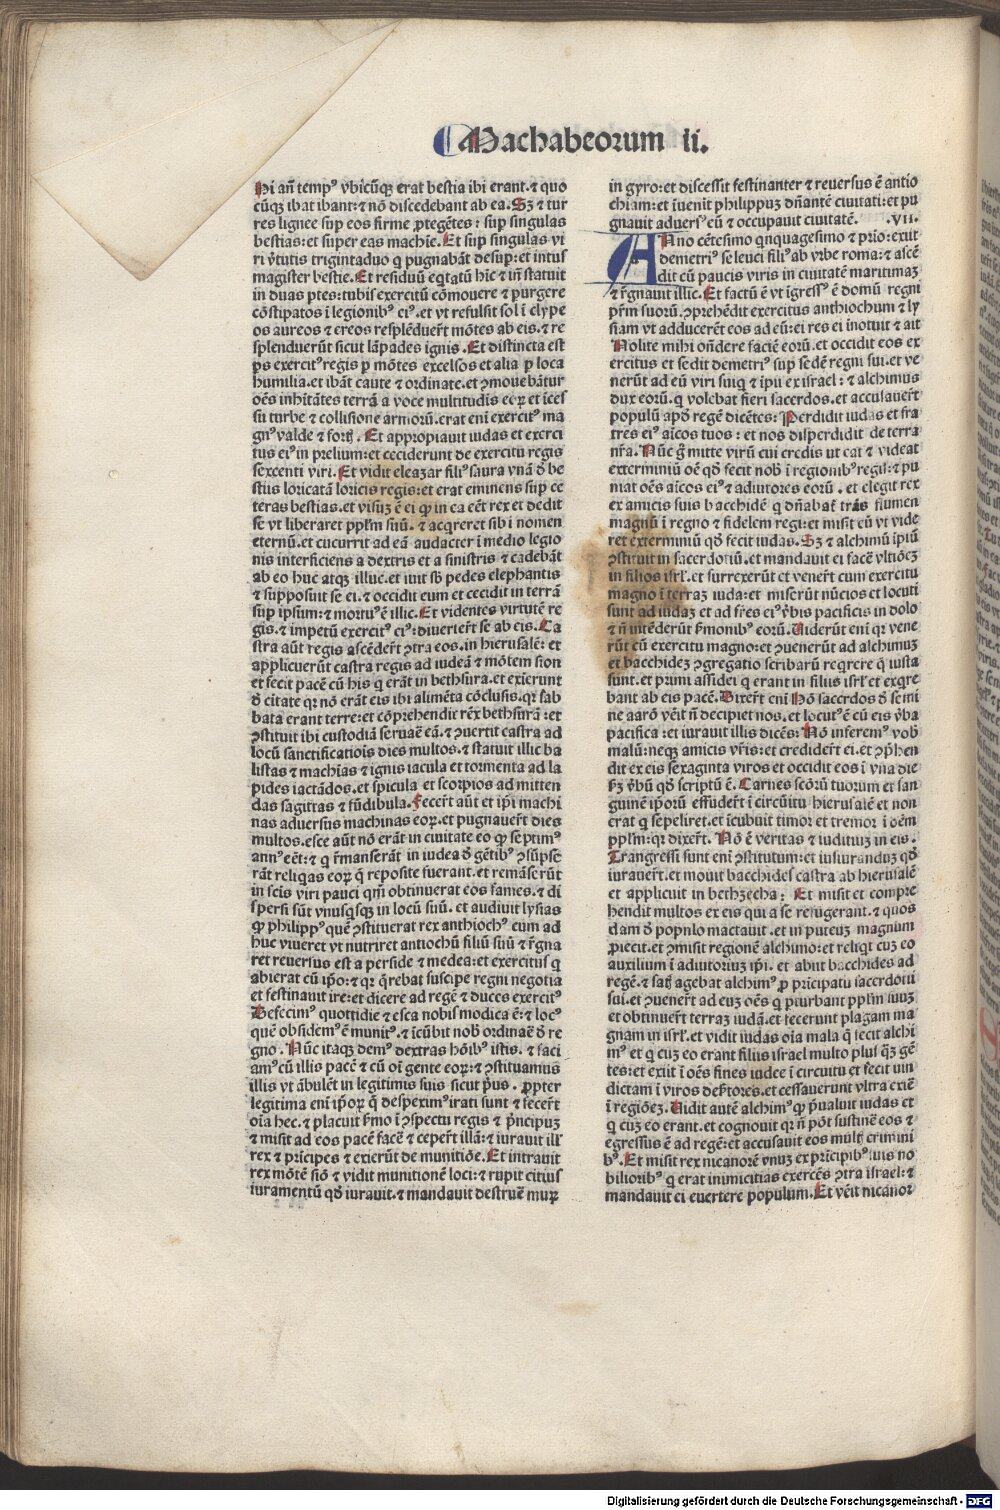 Machabeorum ii.
Hi an̄ tempꝰ vbicūqȝ erat bestia ibi erant.⁊ quo
cūqȝ ibat ibant:⁊ nō discedebant ab ea. Sȝ ⁊ tur
res lignee sup eos firme ꝓtegētes : sup singulas
bestias:et super eas machie. Et sup singulas vi
ri v̄tutis trigintaduo q̄ pugnabāt desup:et intus
magister bestie. Et residuū eq̄tatū hic ⁊ in̄ statuit
in duas ptes:tubis exercitū cōmouere ⁊ ꝑurgere
cōstipatos ī legionibꝰ eiꝰ.et vt refulsit sol ī clype
os aureos ⁊ ereos resplēduer̄t mōtes ab eis.⁊ re
splenduerūt sicut lāpades ignis. Et distincta est
ps exercitꝰ regis ꝑ mōtes excelsos et alia ꝑ loca
humilia.et ibāt caute ⁊ ordinate.et ꝯmouebātur
oēs inhitātes terrā a voce multitudis eoꝝ et īces
su turbe ⁊ collisione armoꝝ.erat enī exercitꝰ ma
gnꝰ valde ⁊ fortꝭ. Et appropiauit iudas et exerci
tus eiꝰ in prelium:et ceciderunt de exercitu regis
sexcenti viri. Et vidit eleazar filiꝰ saura vnā ď be
stiis loricatā loricis regis:et erat eminens sup ce
teras bestias.et visuȝ ē ei ꝙ in ea eēt rex et dedit
se vt liberaret pplm suū. ⁊ acq̄reret sibi nomen
eternū.et cucurrit ad eā audacter ī medio legio
nis interficiens a dextris et a sinistris ⁊ cadebāt
ab eo huc atqȝ illuc.et iuit sb̄ pedes elephantis
⁊ supposuit se ei.⁊ occidit eum et cecidit in terrā
sup ipsum:⁊ mortuꝰ ē illic. Et videntes virtutē re
gis.⁊ impetū exercitꝰ eiꝰ:diuerter̄t se ab eis. Ca
stra aūt regis ascēder̄t ꝯtra eos.in hierusalē: et
applicuerūt castra regis ad iudeā ⁊ mōtem sion
et fecit pacē cū his q̄ erāt in bethsura.et exierunt
ď citate qr nō erāt eis ibi alimēta cōclusis.qr sab
bata erant terre:et cōprehendit rex bethsurā :et
ꝯstituit ibi custodiā seruaē eā.⁊ ꝯuertit castra ad
locū sanctificatiois dies multos.⁊ statuit illic ba
listas ⁊ machīas ⁊ ignis iacula et tormenta ad la
pides iactādos.et spicula et scorpios ad mitten
das sagittas ⁊ fūdibula. Fecer̄t aūt et ip̄i machi
nas aduersus machinas eoꝝ.et pugnauer̄t dies
multos.esce aūt nō erāt in ciuitate eo ꝙ septimꝰ
annꝰ eēt:⁊ q̄ r̄manserāt in iudea ď gētibꝰ ꝯsūpse
rāt reliqas eoꝝ q̄ reposite fuerant.et remāserūt
in scis viri pauci qm̄ obtinuerat eos fames.⁊ di
spersi sūt vnusqsqȝ in locū suū. et audiuit lysias
ꝙ philippꝰ quē ꝯstituerat rex anthiochꝰ cum ad
huc viueret vt nutriret antiochū filiū suū ⁊ r̄gna
ret reuersus est a perside ⁊ medea:et exercitus q̄
abierat cū ip̄o:⁊ qr q̄rebat suscipe regni negotia
et festinauit ire:et dicere ad regē ⁊ duces exercitꝰ
Defecimꝰ quottidie ⁊ esca nobis modica ē:⁊ locꝰ
quē obsidemꝰ ē munitꝰ.⁊ īcūbit nob̄ ordinaē ď re
gno. Nūc itaqȝ demꝰ dextras hōibꝰ istis. ⁊ faci
amꝰ cū illis pacē ⁊ cū oī gente eoꝝ:⁊ ꝯstituamus
illis vt ābulēt in legitimis suis sicut pꝰus. ꝓpter
legitima enī ip̄oꝝ q̄ despeximꝰ irati sunt ⁊ fecer̄t
oīa hec.⁊ placuit ẜmo ī ꝯspectu regis ⁊ pⁱncipuȝ
⁊ misit ad eos pacē facē ⁊ ceper̄t illā:⁊ iurauit ill̓
rex ⁊ prīcipes ⁊ exierūt de munitiōe. Et intrauit
rex mōtē siō ⁊ vidit munitionē loci:⁊ rupit citius
iuramentū qđ iurauit.⁊ mandauit destruē muꝝ
in gyro:et discessit festinanter ⁊ reuersus ē antio
chiam:et īuenit philippuȝ dn̄antē ciuitati:et pu
gnauit aduersꝰ eū ⁊ occupauit ciuitatē. .VII.
ANno cētesimo qnquagesimo ⁊ prīo:exiit
demetriꝰ seleuci filiꝰ ab vrbe roma:⁊ ascē
dit cū paucis viris in ciuitatē maritimaȝ
⁊ r̄gnauit illic. Et factū ē vt īgressꝰ ē domū regni
pr̄m suorū.ꝯprehēdit exercitus anthiochum ⁊ ly
siam vt adducerēt eos ad eū:ei res ei inotuit ⁊ ait
Nolite mihi ondere faciē eorū.et occidit eos ex
ercitus et sedit demetriꝰ sup sedē regni sui.et ve
nerūt ad eū viri iniq ⁊ īpii ex israel: ⁊ alchimus
dux eorū.q̄ volebat fieri sacerdos.et accusauer̄t
populū apđ regē dicētes: Perdidit iudas et fra
tres eiꝰ aīcos tuos: et nos disperdidit de terra
nr̄a. Nūc g̊ mitte virū cui credis ut eat ⁊ videat
exterminiū oē qđ fecit nob̄ ī regionibꝰ regis:⁊ pu
niat oēs aīcos eiꝰ ⁊ adiutores eorū. et elegit rex
ex amicis suis bacchidē q̄ dn̄abat̄ trās flumen
magnū ī regno ⁊ fidelem regi:et misit eū vt vide
ret exterminiū qđ fecit iudas. Sȝ ⁊ alchimū īpiū
ꝯstituit in sacerdotiū.et mandauit ei facē vltōeȝ
in filios isrl̓.et surrexerūt et vener̄t cum exercitu
magno ī terraȝ iuda:et miserūt nūcios et locuti
sunt ad iudaȝ et ad fres eiꝰ v̄bis pacificis in dolo
⁊ n̄ intēderūt ẜmonibꝰ eorū. Viderūt enī qr vene
rūt cū exercitu magno:et ꝯuenerūt ad alchimuȝ
et bacchideȝ ꝯgregatio scribarū reqrere q̄ iusta
sunt.et primi assidei q̄ erant in filiis isrl̓ et exqre
bant ab eis pacē. Dixer̄t enī Hō sacerdos ď semi
ne aarō vēit n̄ decipiet nos.et locutꝰ ē cū eis v̄ba
pacifica:et iurauit illis dicēs: Nō inferemꝰ vob̄
malū:neqȝ amicis vr̄is:et credider̄t ei.et ꝯp̄hen
dit ex eis sexaginta viros et occidit eos ī vna die
ẜȝ v̄bū qđ scriptū ē. Carnes scōrū tuorum et san
guinē ip̄orū effuder̄t ī circūitu hierusalē et non
erat q̄ sepeliret.et īcubuit timor et tremor ī oēm
pplm:qr dixer̄t. Nō ē veritas ⁊ iudituȝ in eis.
Trangressi sunt enī ꝯstitutum:et iusiuranduȝ qđ
iurauer̄t.et mouit bacchides castra ab hierusalē
et applicuit in bethzecha: Et misit et compre
hendit multos ex eis qui a se refugerant.⁊ quos
dam ď popnlo mactauit.et in puteuȝ magnum
ꝓiecit.et ꝯmisit regionē alchimo:et reliqt cuȝ eo
auxilium ī adiutoriuȝ ip̄i. et abiit bacchides ad
regē.⁊ satꝭ agebat alchimꝰ ꝓ prīcipatu sacerdotii
sui.et ꝯuener̄t ad euȝ oēs q̄ ꝑturbant pplm suuȝ
et obtinuer̄t terraȝ iudā.et fecerunt plagam ma
gnam in isrl̓.et vidit iudas oīa mala q̄ fecit alchi
mꝰ et q̄ cuȝ eo erant filiis israel multo plus q̄ȝ gē
tes:et exiit ī oēs fines iudee ī circuitu et fecit vin
dictam ī viros deẜtores.et cessauerunt vltra exiē
ī regiōeȝ. Vidit autē alchimꝰ ꝙ p̄ualuit iudas et
q̄ cuȝ eo erant.et cognouit qr n̄ pōt sustinē eos ⁊
egressus ē ad regē:et accusauit eos multꝭ crimini
bꝰ. Et misit rex nicanorē vnuȝ ex prīcipibꝰ suis no
bilioribꝰ q̄ erat inimicitias exercēs ꝯtra israel:⁊
mandauit ei euertere populum. Et vēit nicanor
Digitalisierung gefördert durch die Deutsche Forschungsgemeinschaft - DFG